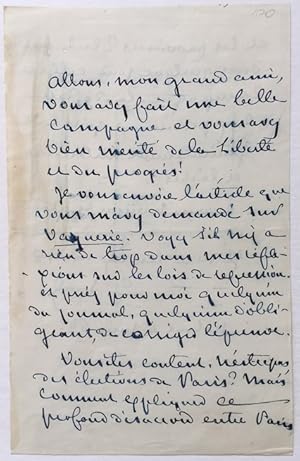 170
allons, mon grand ami,
vous avez fait une belle
campagne et vous avez
bien mérité de la liberté
et du progrès!
Je vous envoie l'article que
vous m'avez demandé sur
Vaquerie. Voyez s'il n'y a
rien de trop dans mes réfle-
xions sur les lois de répression.
et priez pour moi quelqu'un
du journal, quelqu'un d'obli-
geant, de corriger l'épreuve.
Vous êtes content, n'est ce pas
des élections de Paris? Mais
comment expliquer ce
profond désaccord entre Paris